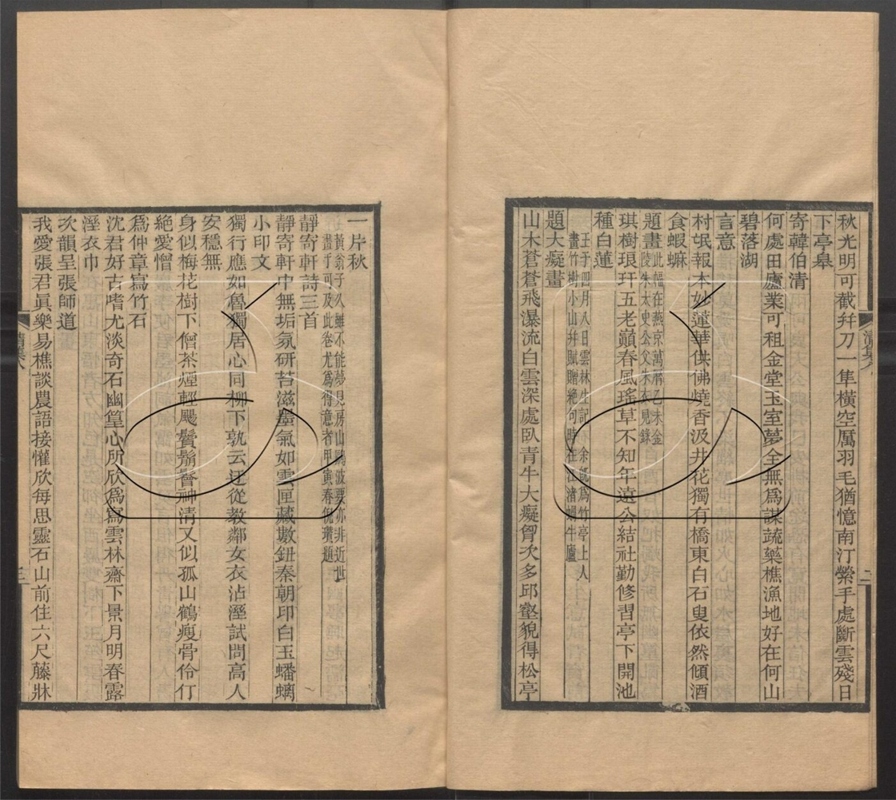 秋光明可截幷刀一隼橫空厲羽毛猶憶南汀縈手處斷雲殘日
下亭皋
寄韓伯清
何處田廬業可租金堂玉室夢全無爲謀蔬藥樵漁地好在何山
碧落湖
言意
村氓報本妙蓮華供佛燒香汲井花獨有橋東白石叟依然傾酒
食蝦蟆
題畫
琪樹琅玕五老巔春風瑤草不知年遠公結社勤修習亭下開池
種白蓮
王子四月八日雲林生記
畫竹樹小山幷賦
題大癡畫
山木蒼蒼飛瀑流白雲深處臥青牛大癡胷次多邱壑貌得松亭
一片秋
靜寄軒詩三首
靜寄軒中無垢氛研苔滋墨氣如雲匣藏數鈕秦朝印白玉蟠螭
小印文
獨行應如魯獨居心同柳下孰云迂從教鄰女衣沾溼試問高人
安穩無
身似梅花樹下僧茶煙輕颺鬢鬅鬙神清又似孤山鶴瘦骨伶仃
絶愛憎
爲仲章寫竹石
沈君好古嗜尤淡奇石幽篁心所欣爲寫雲林齋下景月明春露
溼衣巾
次韻呈張師道
我愛張君眞樂易樵談農語接懽欣每思靈石山前住六尺藤牀